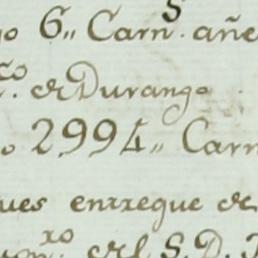 go 6,, Carn.s añe
co. de Durango
o 2994,, Carn
ues entregue de
xo del S.D.